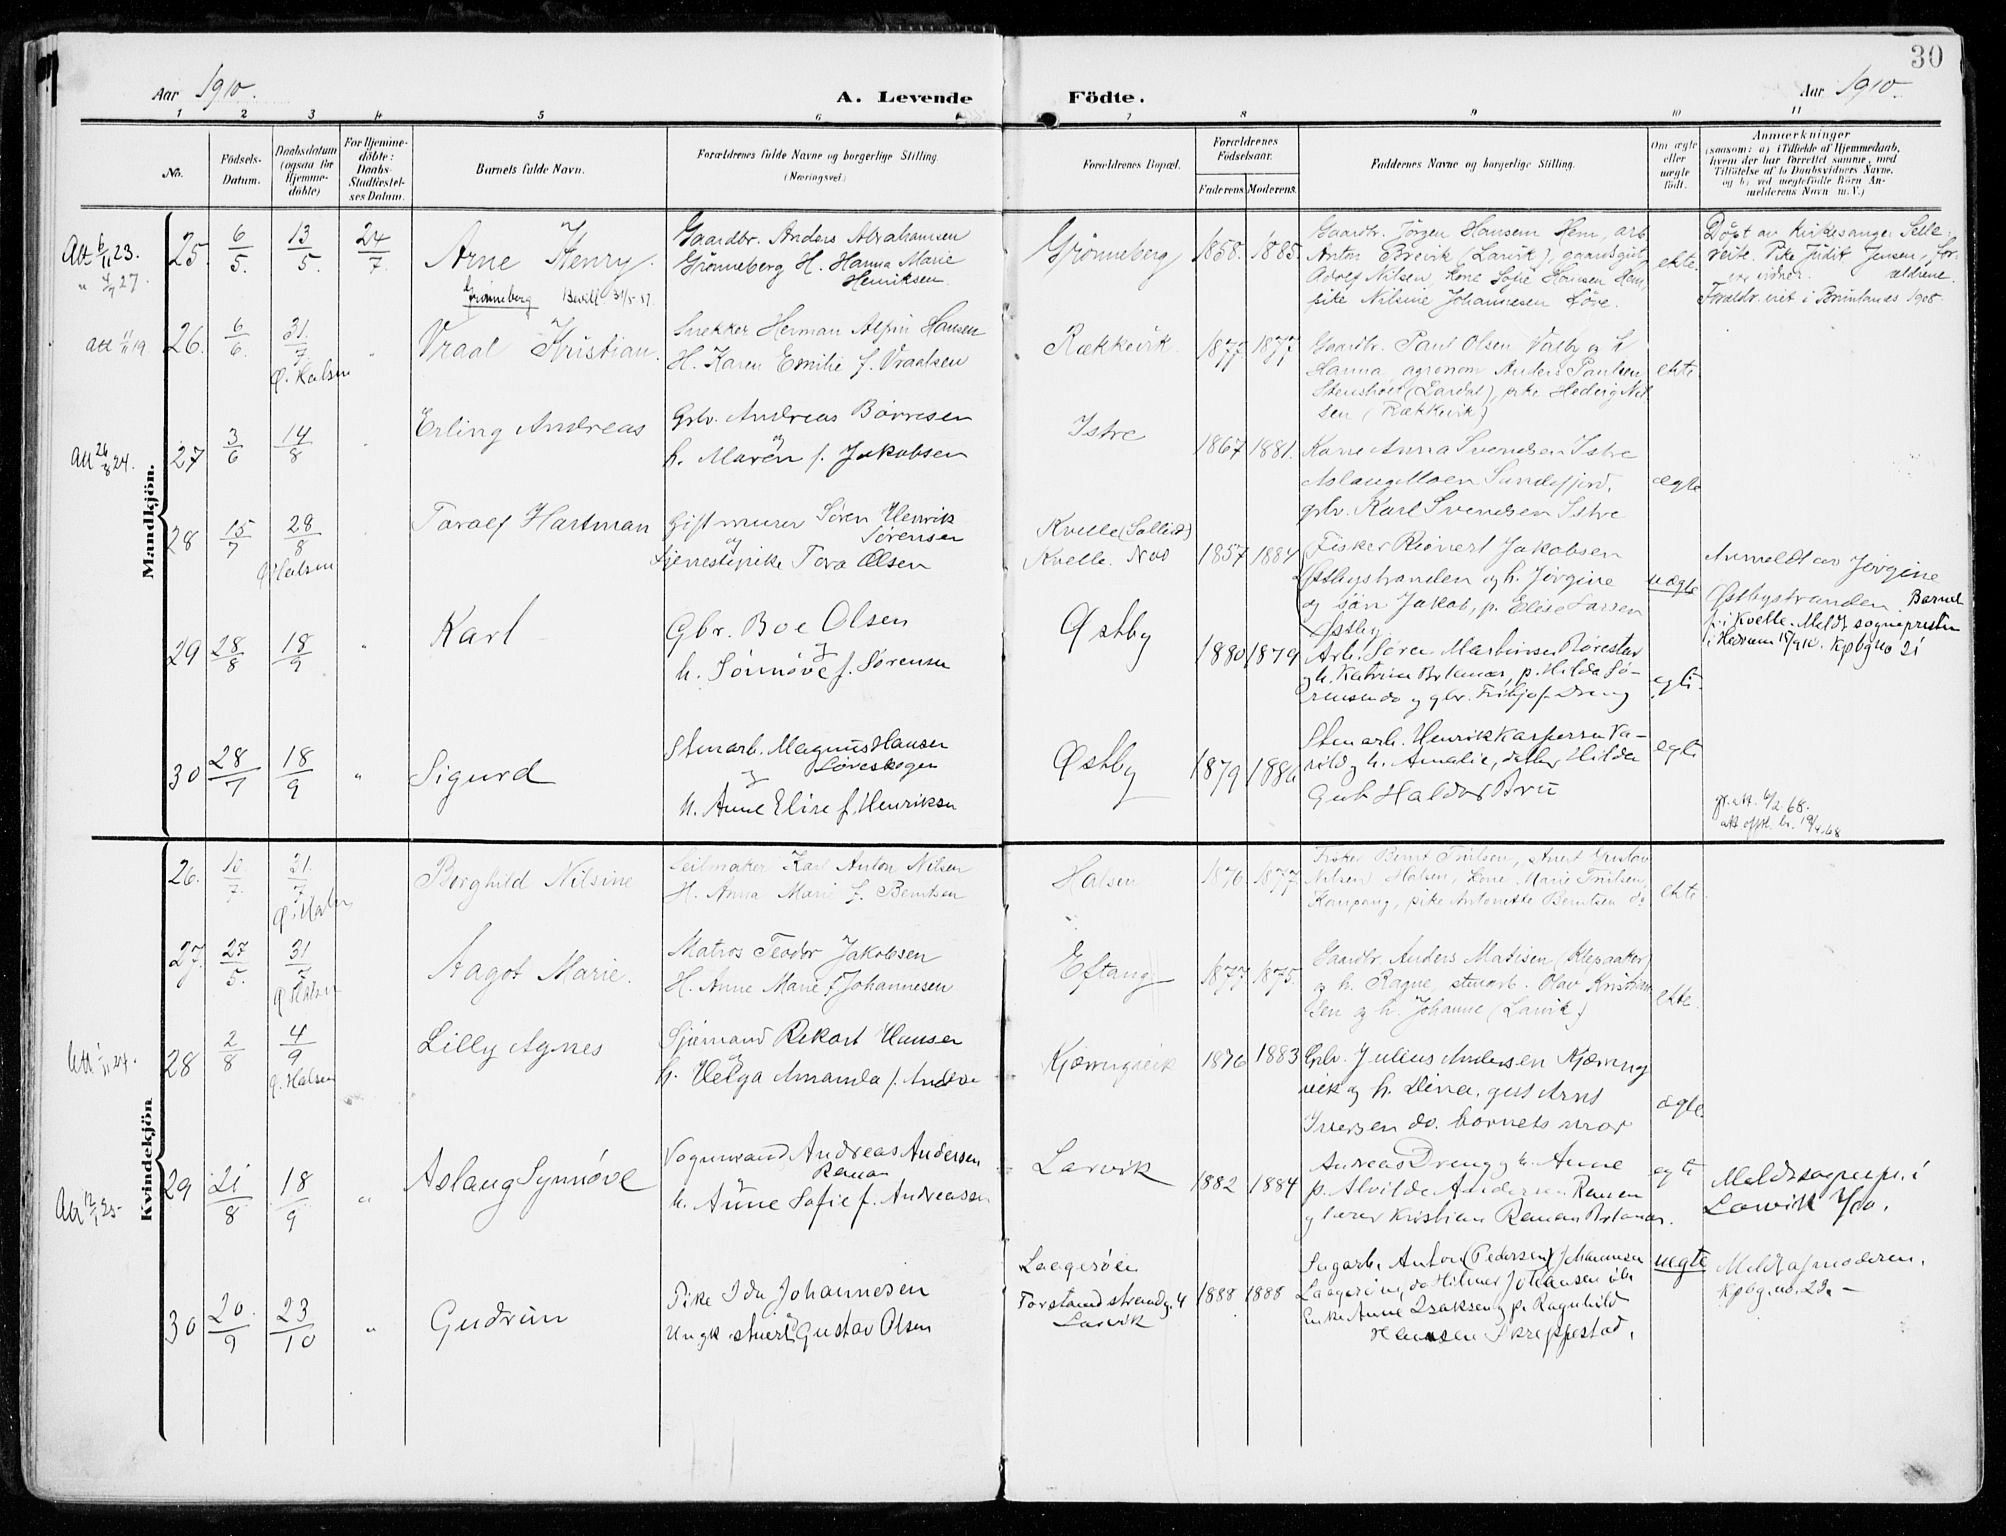 30
Aar 1910.
A. Levende Födte.
Aar 1910.
1 2 3 4 5 6 7 8 9 10 11
No.
Födsels-Datum.
Daabsdatum (ogsaa for Hjemmedöbte)
For Hjemmedöbte: Daabs-Stadfæstelses Datum.
Barnets fulde Navn.
Forældrenes fulde Navne og borgerlige Stilling.
(Næringsvei)
Forældrenes Bopæl.
Forældrenes Födselsaar.
Faderens. Moderens.
Faddernes Navne og borgerlige Stilling.
Om ægte eller uægte født.
Anmærkninger
(saasom: a) i Tilfælde af Hjemmedaab, hvem der har forrettet samme, med Tilföielse af to Daabsvidners Navne, og b) ved uægtefödte Börn Anmelderens Navn m. V.)
Mandkjön.
Att 6/11 23.
" 4/7 27.
25 6/5. 13/5. 24/7
Arne Henry.
Grønneberg Bevill 31/5-57.
Gaardbr. Anders Abrahamsen
Grønneberg H. Hanna Marie
Henriksen.
Grønneberg
1858. 1885.
Gaardbr. Jørgen Hansen Hem, arb
Anton Breivik (Larvik), gaardsgut
Adolf Nilsen, kone Sofie Hansen Hem,
pike Nilsine Johannesen Løve.
ekte.
Døpt av kirkesanger
Pike Judit Jensen, for-
ældrene
vidner.
Foreldr. viet i Brunlanes 1908.
Att 11/11 19
26. 6/6. 31/7 "
Ø. Halsen
Vraal Kristian.
Snekker Herman Alfin Hansen
H. Karen Emilie f. Vraalsen
Rækkevik.
1877 1877
Gaardbr. Paul Olsen Valby og h
Hanna, agronom Anders Paulsen
Stensholt (Lardal), pike Hedvig Nil
sen (Rækkevik)
ekte.
Att 26/8 24.
27 3/6 14/8 "
Erling Andreas
Grbr. Andreas Børresen
og
h. Maren f. Jakobsen
Istre
1867 1881.
Kone Anna Svendsen Istre
Aslaug Moen Sandefjord,
grbr. Karl Svendsen Istre
ægte
28 15/7 28/8 "
Ø Halsen
Toralf Hartman
Gift murer Søren Henrik
Sørensen
og
tjenestepike Tora Olsen
Kvelle (Sollid)
Kvelle. Nes
1857 1884
Fisker Reinert Jakobsen
Østbystranden og h. Jørgine
og søn Jakob, p. Elise Larsen
Østby
uægte
Anmeldt av Jørgine
Østbystranden. Barnet
f. i Kvelle. Meldt sognepresten
i Hedrum 15/9 10. Kpbg no 21
29 28/8 18/9 "
Karl
Gbr. Boe Olsen
og
h. Sønnøve f. Sørensen
Østby
1880 1879
Arb. Søren Martinsen Rørestad
og h. Katrine Brlanæs, p. Hilda Sø-
rensen do og gbr. Fritjof Dreng
egte.
30 28/7 18/9 "
Sigurd
Stenarb. Magnus Hansen
Løveskogen
og
h. Anne Elise f. Henriksen
Østby
1879 1886
Stenarb. Henrik Kaspersen Va-
og h. Amalie, datter Hilda
Gut Haldor Bru
egte
gr. att. 6/2 68.
att oppl. br. 19/4 68
Kvindekjön
26. 10/7. 31/7
Ø. Halsen
Borghild Nilsine
Seilmaker Karl Anton Nilsen
H. Anna Marie f. Berntsen
Halsen
1876 1877
Fisker Bernt Tnilsen, stuert Gustav
Nilsen Halsen, kone Marie Tnilsen,
Kampang, pike Antonette Berntsen do
ekte.
27. 27/5. 31/7
Ø Halsen
Aagot Marie.
Matros Teodor Jakobsen
H. Anne Marie f Johannesen
Eftang
1877 1875.
Gaardbr. Anders Matisen (Klepaaker)
og h. Ragne, stenarb. Olav Kristian
sen og h. Johanne (Larvik)
ekte.
Att 1/11 24.
28 2/8 4/9
Ø. Halsen
Lilly Agnes
Sjømand Rikart Hansen
og
h. Helga Amanda f. Andre
Kjærringvik
1876 1883
Grbr. Julius Andersen Kjærring
vik og h. Dina, gut Arnt
Iversen do. barnets mor
ægte
Att 12/1 25-
29 21/8 18/9 "
Aslaug Synnøve
Vognmand Andreas Andersen
Raman
h. Anne Sofie f. Andreassen
Larvik
1882 1884
Andreas Dreng og h. Anne
p. Alvilde Andersen Raman
og lærer Kristian Raman Brlanæs.
egte
Meldt sognepr. i
Larvik
30 20/9 23/10 "
Gudrun
Pike Ida Johannesen
Ungk. stuert Gustav Olsen
Laagerøen
Torstrandstrandg. 4
Larvik
1888 1888
Sagarb. Anton (Pedersen) Johannesen
Laagerøen, do Hilmer Johansen ibi
Enke Anne Isaksen og p. Ragnhild
Hansen Skreppestad.
uegte
Meldt af moderen.
Kpbg. no. 22. -